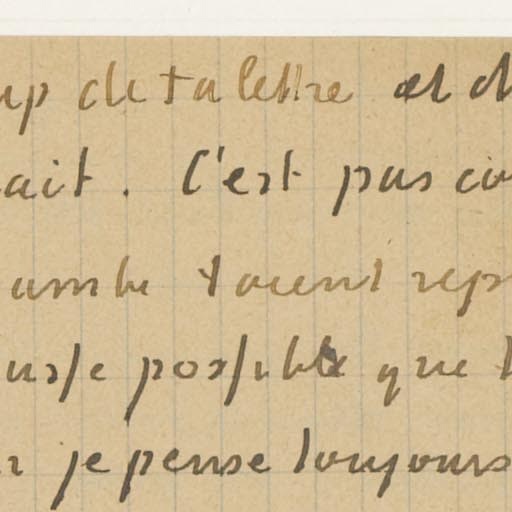 up de ta lettre et d
ait. C'est pas co
soient rep
possible que
je pense toujours